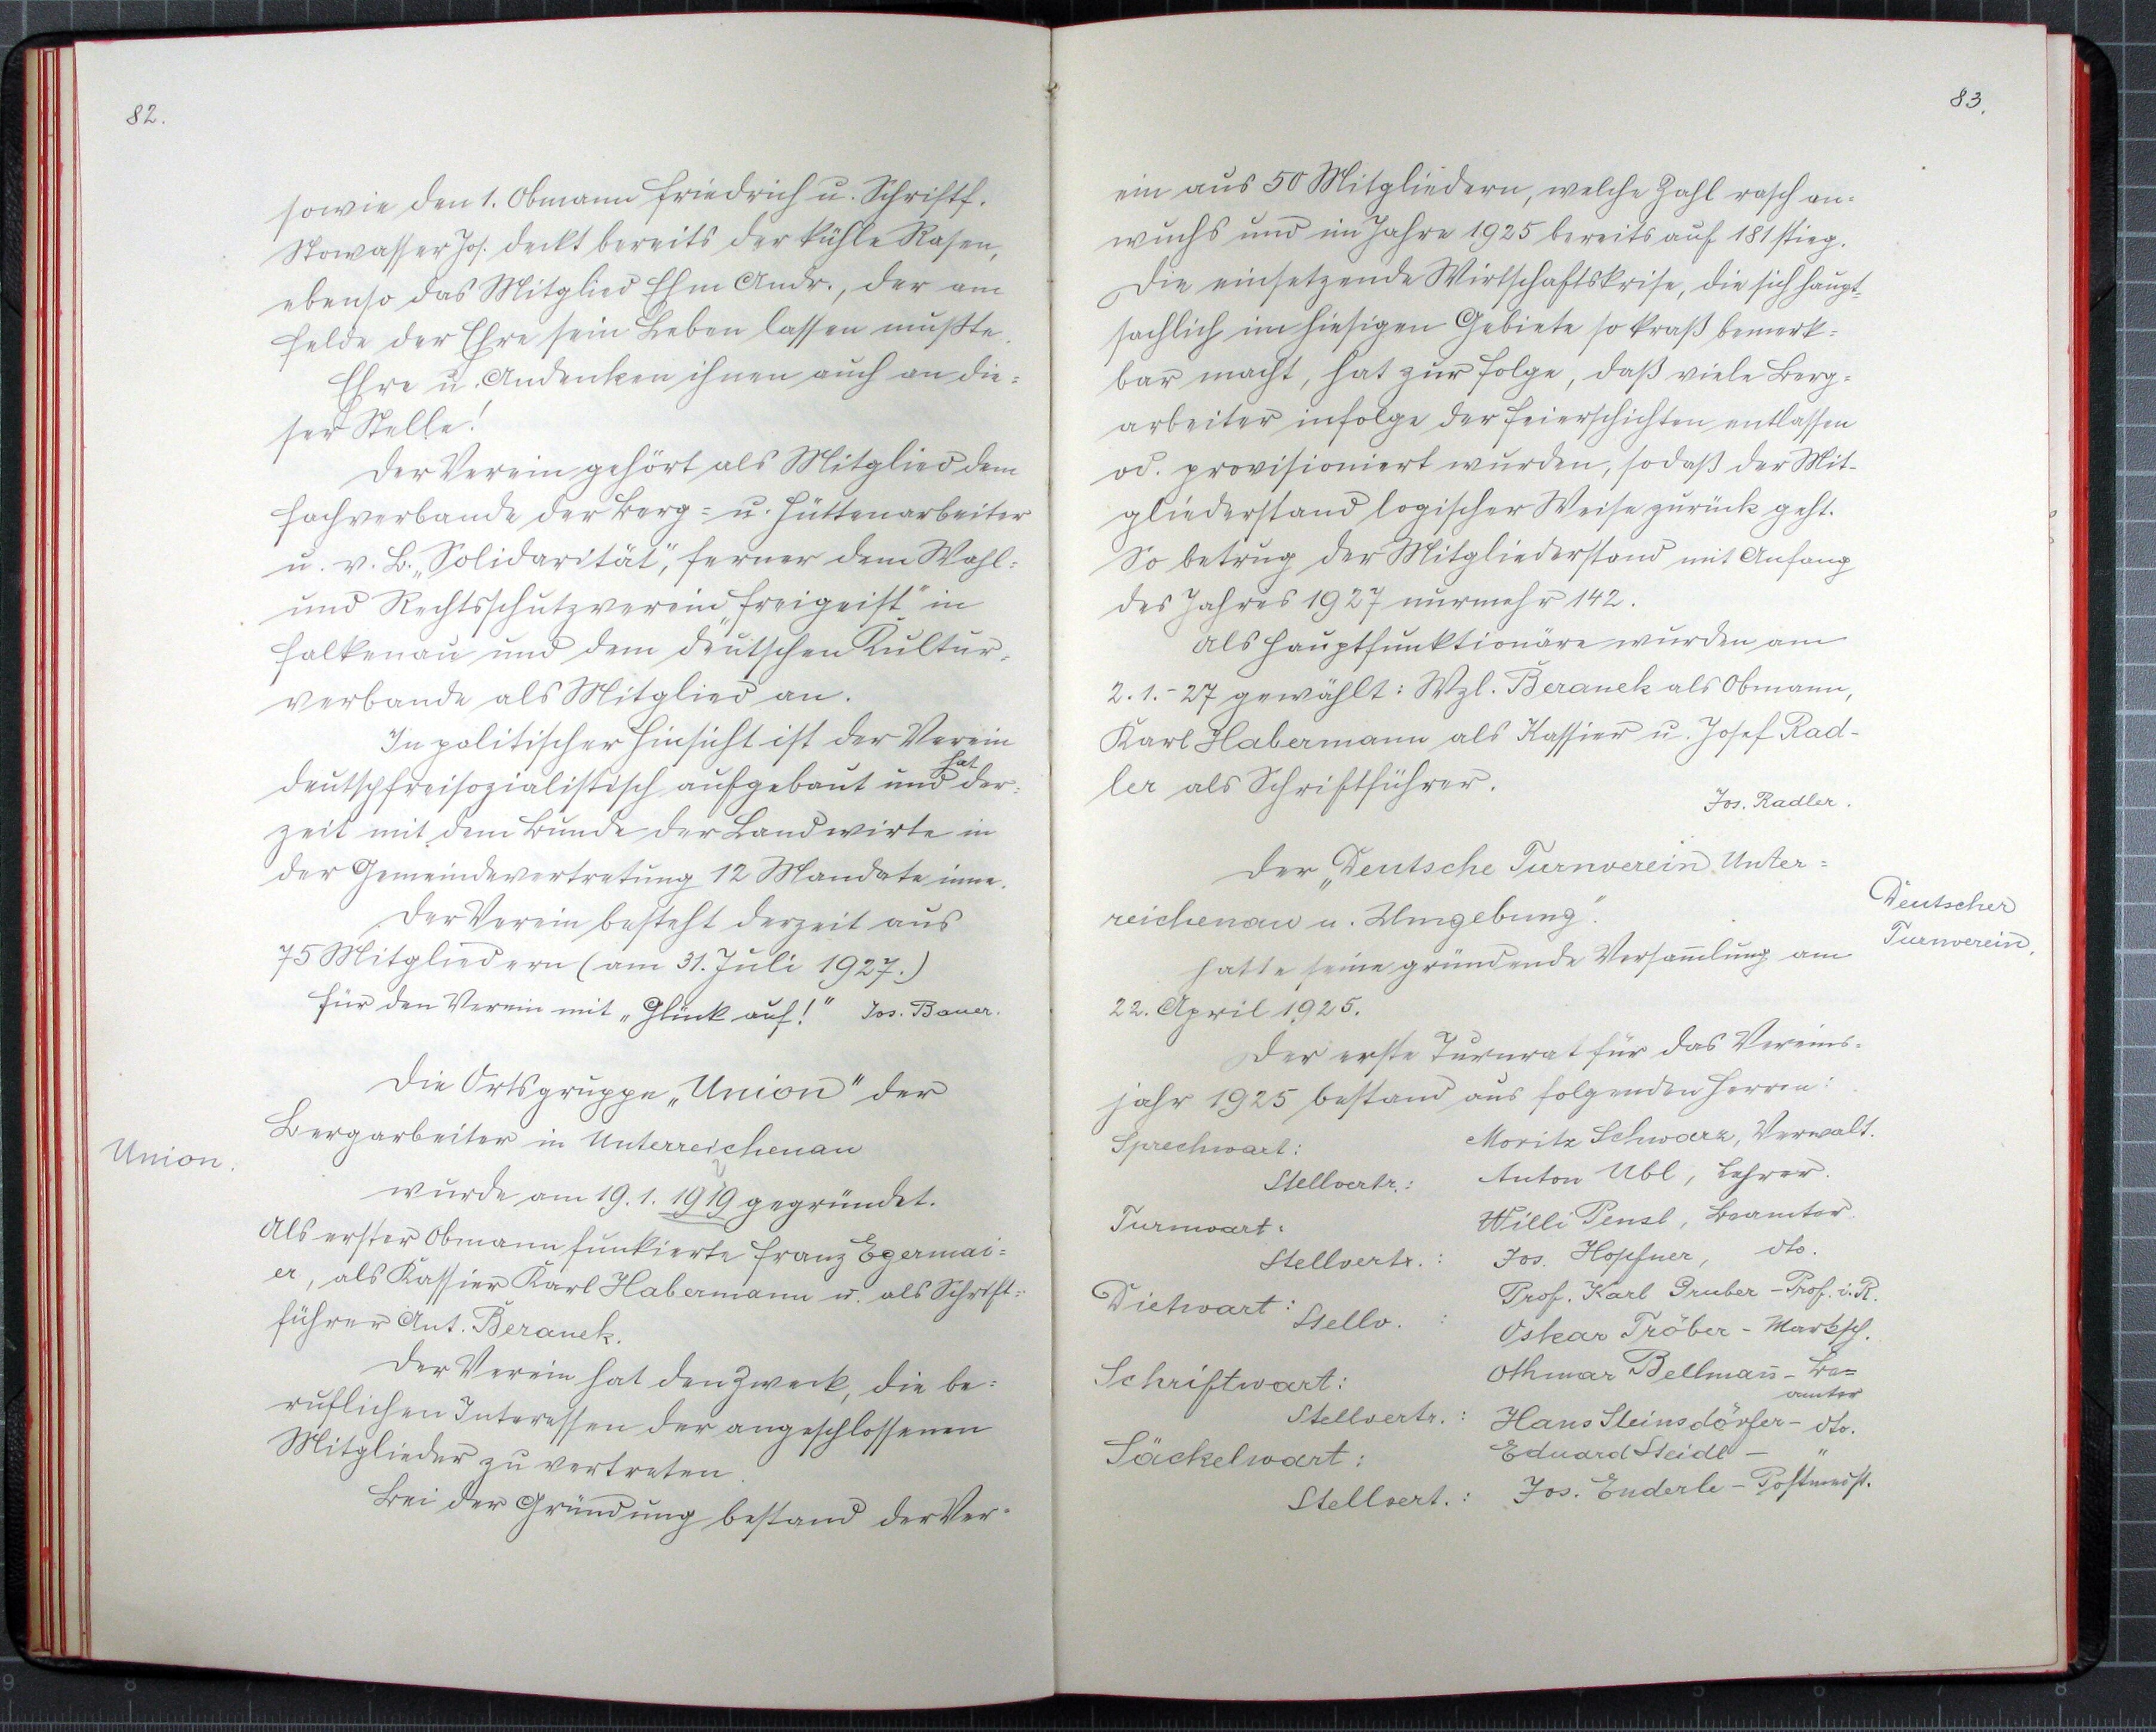 82.
sowie den 1. Obmann Friedrich u. Schriftf.
Stowasser Jos. deckt bereits der kühle Rasen,
ebenso das Mitglied Ehm Andr., der am
Felde der Ehre sein Leben lassen mußte.
Ehre u. Andenken ihnen auch an die=
ser Stelle!
Der Verein gehört als Mitglied dem
Fachverbande der Berg= u. Hüttenarbeiter
u. v. B. „Solidarität", ferner dem Wahl=
und Rechtsschutzverein „Freigeist" in
Falkenau und dem deutschen Kultur=
verbande als Mitglied an.
In politischer Hinsicht ist der Verein
deutschfreisozialistisch aufgebaut und hat der=
zeit mit dem Bunde der Landwirte in
der Gemeindevertretung 12 Mandate inne.
Der Verein besteht derzeit aus
75 Mitgliedern (am 31. Juli 1927.)
Für den Verein mit „Glück auf!" Jos. Bauer.
Die Ortsgruppe „Union" der
Bergarbeiter in Unterreichenau
Union.
wurde am 19. 1. 1919 gegründet.
Als erster Obmann funkierte Franz Egermai=
er, als Kassier Karl Habermann u. als Schrift=
führer Ant. Beranek.
Der Verein hat den Zweck, die be=
ruflichen Interessen der angeschlossenen
Mitglieder zu vertreten.
Bei der Gründung bestand der Ver=
83.
ein aus 50 Mitgliedern, welche Zahl rasch an=
wuchs und im Jahre 1925 bereits auf 181 stieg.
Die einsetzende Wirtschaftskrise, die sich haupt=
sachlich im hiesigen Gebiete so kraß bemerk=
bar macht, hat zur Folge, daß viele Berg=
arbeiter infolge der Feierschichten entlassen
od. provisioniert wurden, sodaß der Mit-
gliederstand logischer Weise zurück geht.
So betrug der Mitgliederstand mit Anfang
des Jahres 1927 nurmehr 142.
Als Hauptfunktionäre wurden am
2. 1. - 27 gewählt: Wzl. Beranek als Obmann,
Karl Habermann als Kassier u. Josef Rad-
ler als Schriftführer.
Jos. Radler.
Der „Deutsche Turnverein Unter=
reichenau u. Umgebung".
Deutscher
Turnverein.
hatte seine gründende Versam̄lung am
22. April 1925.
Der erste Turnrat für das Vereins=
jahr 1925 bestand aus folgenden Herren:
Sprechwart: Moritz Schwarz, Verwalt.
Stellvertr.: Anton Ubl, Lehrer.
Turnwart: Willi Pensl, Beamter.
Stellvertr.: Jos. Hopfner, dto.
Dietwart: Prof. Karl Gruber - Prof. i. R.
Stellv. : Oskar Tröber - Marksch.
Schriftwart: Othmar Bellman̄ - Be=
amter
Stellvertr.: Hans Steinsdörfer - dto.
Säckelwart: Eduard Steidl - "
Stellvert.: Jos. Enderle - Postmeist.